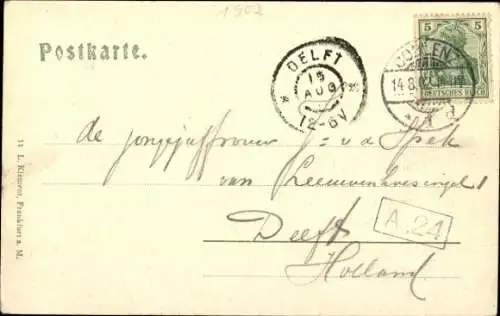 1902
Postkarte.
DELFT
15
AUG
12-6V
COBLENZ
14.8.02
5 5
DEUTSCHES REICH
de jongejuffrouw J: v. d. Spek
van Leeuwenhoeksingel 1
A.24
Delft
Holland.
14 L. Klement, Frankfurt a. M.